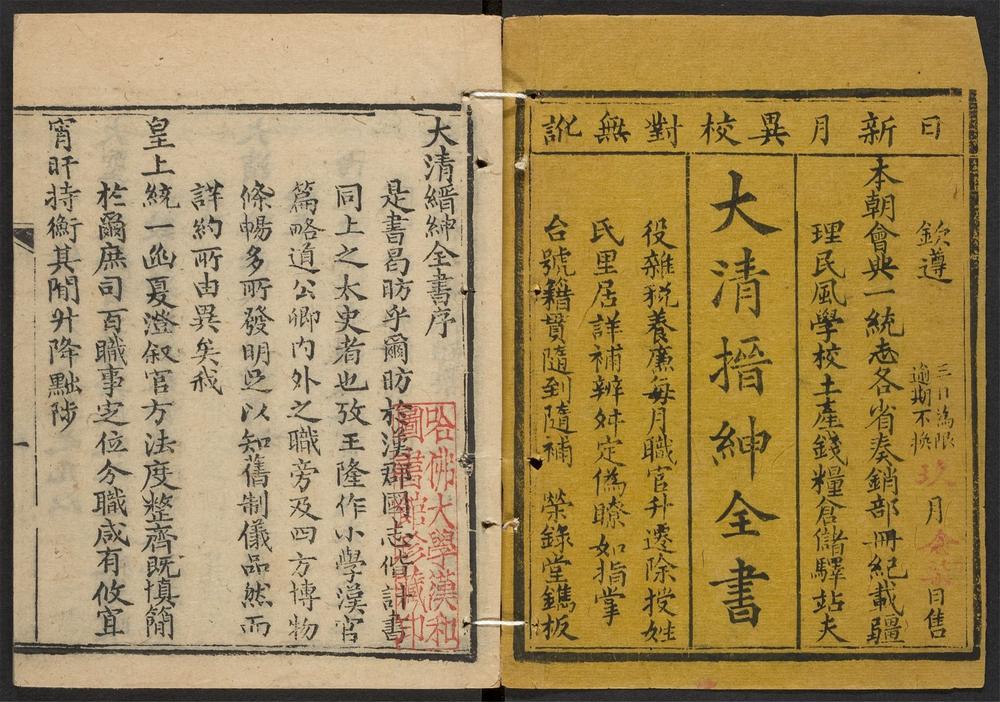 日新月異校對無訛
欽遵
三日為限
逾期不換
玖月念
日售
本朝會典一統志各省奏銷部冊紀載疆
理民風學校土產錢糧倉儲驛站夫
大清搢紳全書
役雜稅養廉每月職官升遷除授姓
氏里居詳補辨舛定偽瞭如指掌
台號籍貫隨到隨補 榮錄堂鐫板
大清縉紳全書序
是書曷昉乎爾昉於漢郡國志偕計書
同上之太史者也攷王隆作小學漢官
篇略道公卿內外之職旁及四方博物
條暢多所發明足以知舊制儀品然而
詳約所由異矣我
皇上統一函夏澄叙官方法度整齊既慎簡
於爾庶司百職事定位分職咸有攸宜
宵旰持衡其間升降黜陟
哈佛大學漢和
圖書館珍藏印
一